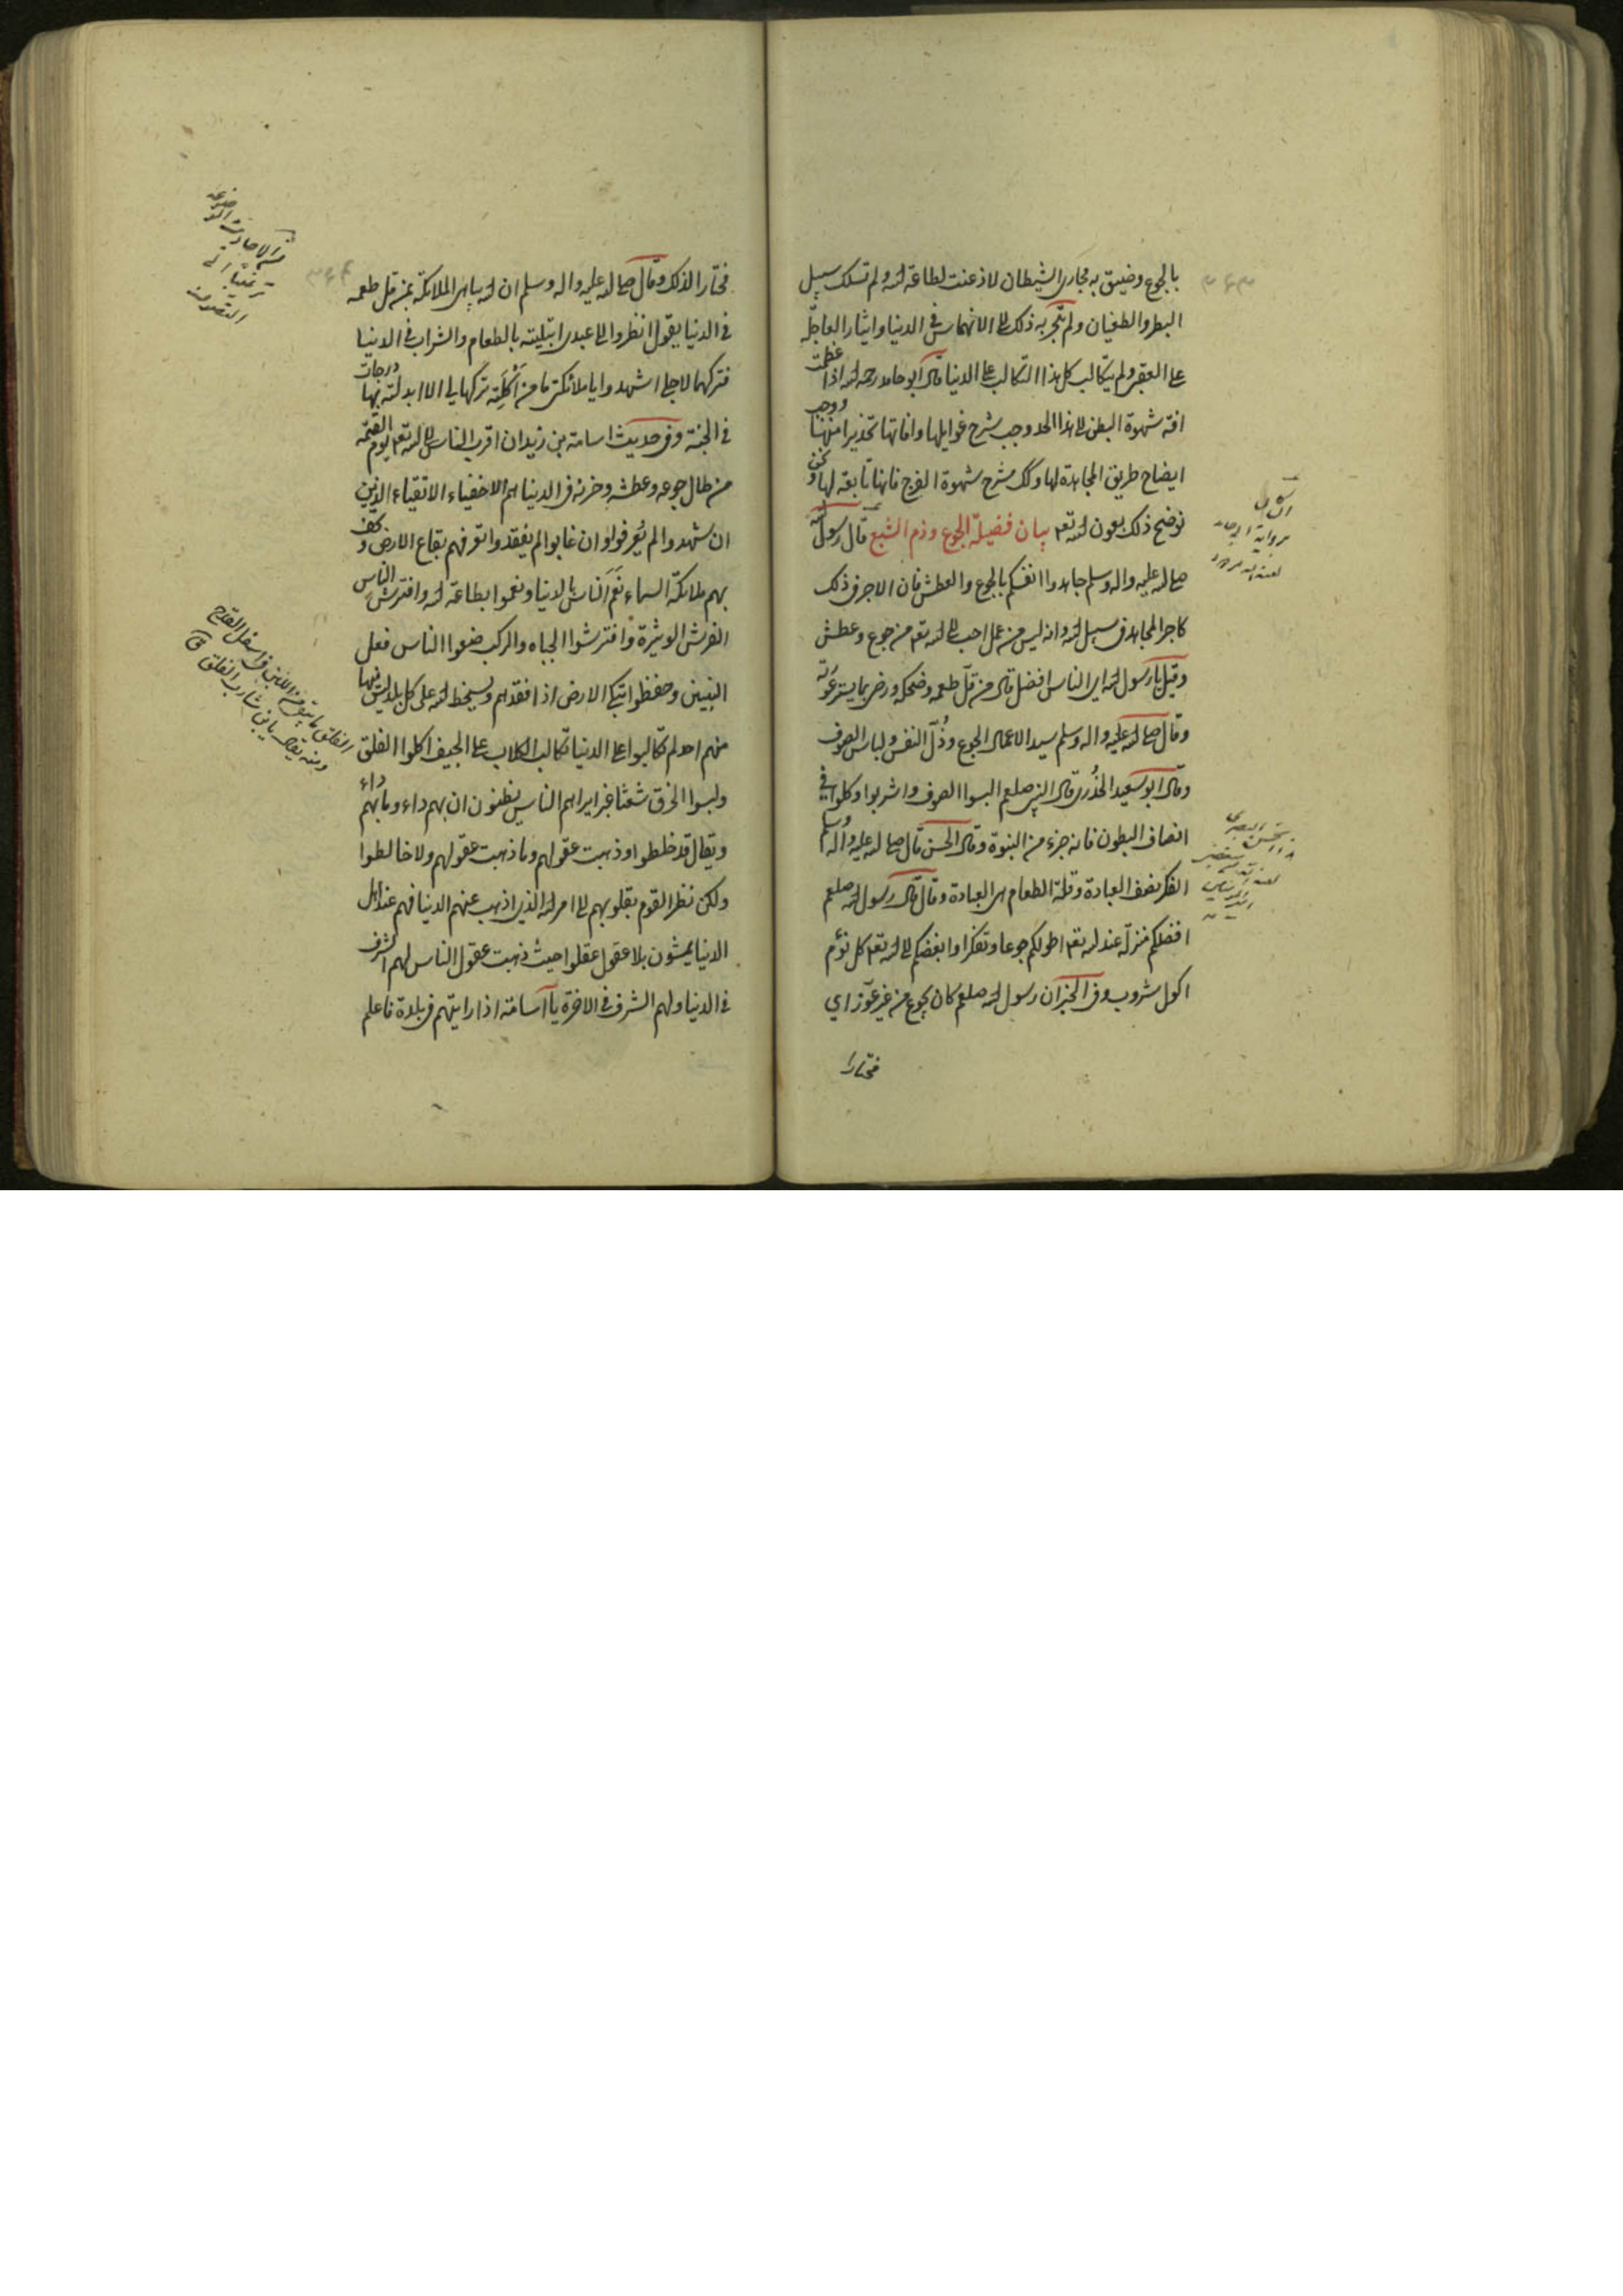 بالجوع وضيق به مجاري الشيطان لاذعنت لطاعة الله ولم تسلك سبيل
البطر والطغيان ولم ينجر به ذلك الى الانهماس في الدنيا وايثار العاجلة
على العقبى ولم يتكالب كل هذا التكالب على الدنيا قال ابو حامد رحمه الله اذا عظمت
افة شهوة البطن الى هذا الحد وجب شرح غوايلها وافاتها تحذيرا منها ووجب
ايضاح طريق المجاهدة لها وكك شرح شهوة الفرج فانها تابعة لها ونحن
نوضح ذلك بعون الله تعه بيان فضيلة الجوع وذم الشبع قال رسول الله
صلى الله عليه واله وسلم جاهدوا انفسكم بالجوع والعطش فان الاجر في ذلك
كاجر المجاهد في سبيل الله وانه ليس من عمل احب الى الله تعه من جوع وعطش
وقيل يا رسول الله اي الناس افضل قال من قل طعمه وضحكه ورضي بما يستر عورته
وقال صلى الله عليه واله وسلم سيد الاعمال الجوع وذُلّ النفس ولباس الصوف
وقال ابو سعيد الخُدري قال النبي صلعم البسوا الصوف واشربوا وكلوا في
انصاف البطون فانه جزء من النبوة وقال الحسن قال صلى الله عليه واله وسلم
الفكر نصف العبادة وقلة الطعام هي العبادة وقال قال رسول الله صلعم
افضلكم منزلة عند الله تعه اطولكم جوعا وتفكرا وابغضكم الى الله تعه كل نؤم
اكول شروب وفي الخبر ان رسول الله صلعم كان يجوع من غير عوز اي
مختارا
مختارا لذلك وقال صلى الله عليه واله وسلم ان الله يباهي الملائكة بمن قل طعمه
في الدنيا يقول انظروا الى عبدي ابتليته بالطعام والشراب في الدنيا
فتركهما لاجلي اشهدوا يا ملائكتي ما من أكلة تركها لي الا ابدلته بها درجات
في الجنة وفي حديث اسامة بن زيد ان اقرب الناس الى الله تعه يوم القيمة
من طال جوعه وعطشه وحزنه في الدنيا هم الاخفياء الاتقياء الذين
ان شهدوا لم يُعرفوا وان غابوا لم يفقدوا تعرفهم بقاع الارض وتحف
بهم ملائكة السماء نَعَم الناس بالدنيا ونعموا بطاعة الله وافترش الناس
الفرش الوثيرة وافترشوا الجباه والركب ضيعوا الناس فعل
النبيين وحفظوا تبكي الارض اذا فقدتهم ويسخط الله على كل بلد ليس فيها
منهم احد لم يتكالبوا على الدنيا تكالب الكلاب على الجيف اكلوا الفلق
ولبسوا الخرق شعثا غبرا يراهم الناس يظنون ان بهم داء وما بهم داء
ويقال قد خلطوا وذهبت عقولهم وما ذهبت عقولهم ولا خالطوا
ولكن نظر القوم بقلوبهم الى امر الله الذي اذهب عنهم الدنيا فهم عند اهل
الدنيا يمشون بلا عقول عقلوا حيث ذهبت عقول الناس لهم الشرف
في الدنيا ولهم الشرف في الاخرة يا اسامة اذا رايتهم في بلدة فاعلم
الفلق ما يبقى من اللبن في اسفل القدح
ومنه يقال يا بن شارب الفلق ق